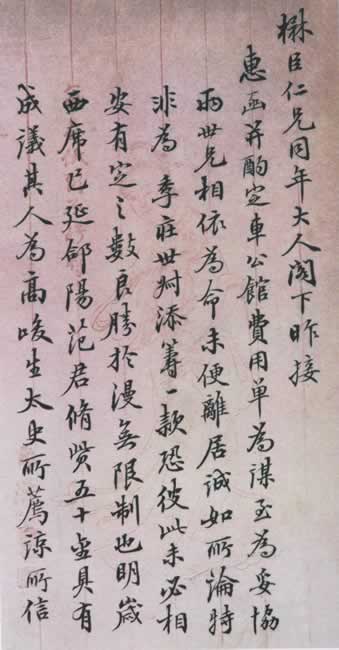 楙臣仁兄同年大人阁下昨接
惠函并酌定車公館費用单為謀至為妥協
兩世兄相依為命未便離居誠如所論特
非為季莊世叔添籌一款恐彼此未必相
安有定之數良勝於漫無限制也明歲
西席已延郃陽范君脩貲五十金具有
成議其人為高峻生太史所薦諒所信